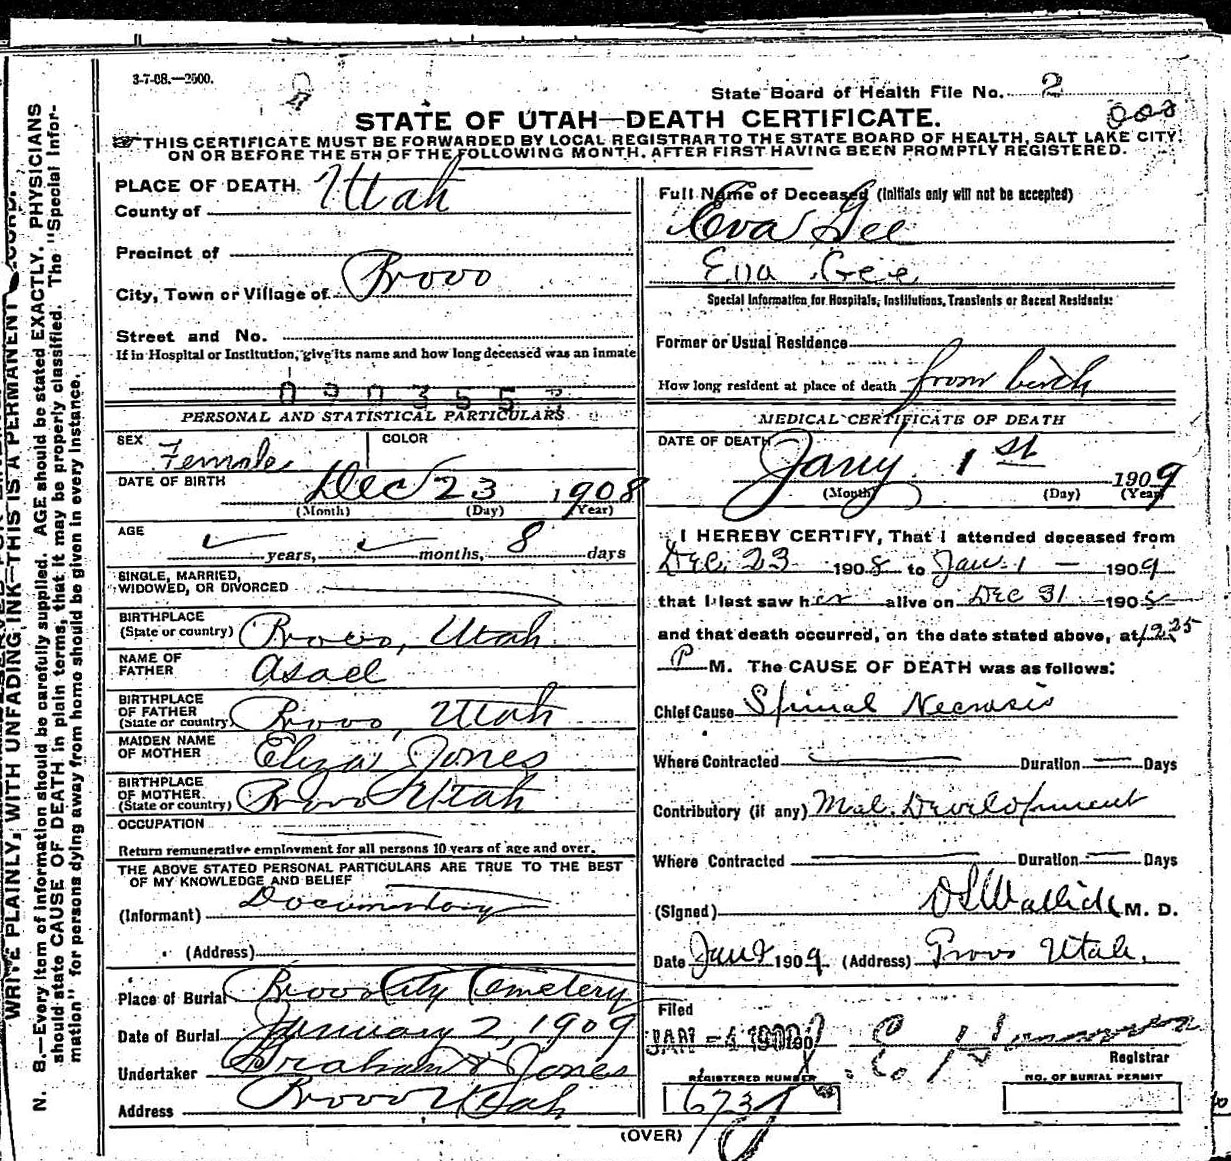 3-7-08.—2500.
State Board of Health File No. 2
STATE OF UTAH—DEATH CERTIFICATE.
THIS CERTIFICATE MUST BE FORWARDED BY LOCAL REGISTRAR TO THE STATE BOARD OF HEALTH, SALT LAKE CITY,
ON OR BEFORE THE 5TH OF THE FOLLOWING MONTH, AFTER FIRST HAVING BEEN PROMPTLY REGISTERED.
PLACE OF DEATH.
County of Utah
Precinct of
City, Town or Village of Provo
Street and No.
If in Hospital or Institution, give its name and how long deceased was an inmate
PERSONAL AND STATISTICAL PARTICULARS
SEX Female COLOR
DATE OF BIRTH Dec 23 1908
(Month) (Day) (Year)
AGE
years, months, 8 days
SINGLE, MARRIED,
WIDOWED, OR DIVORCED
BIRTHPLACE
(State or country) Provo, Utah
NAME OF
FATHER Asael
BIRTHPLACE
OF FATHER
(State or country) Provo, Utah
MAIDEN NAME
OF MOTHER Eliza Jones
BIRTHPLACE
OF MOTHER
(State or country) Provo Utah
OCCUPATION
Return remunerative employment for all persons 10 years of age and over.
THE ABOVE STATED PERSONAL PARTICULARS ARE TRUE TO THE BEST
OF MY KNOWLEDGE AND BELIEF
(Informant) Documentary
(Address)
Place of Burial Provo City Cemetery
Date of Burial January 2, 1909
Undertaker Graham & Jones
Address Provo Utah
Full Name of Deceased (Initials only will not be accepted)
Eva Gee
Eva Gee
Special Information for Hospitals, Institutions, Transients or Recent Residents:
Former or Usual Residence
How long resident at place of death from birth
MEDICAL CERTIFICATE OF DEATH
DATE OF DEATH Jany. 1st 1909
(Month) (Day) (Year)
I HEREBY CERTIFY, That I attended deceased from
Dec. 23 1908 to Jan. 1 — 1909
that I last saw her alive on Dec 31 1908
and that death occurred, on the date stated above, at 12 25
P M. The CAUSE OF DEATH was as follows:
Chief Cause Spinal Necrosis
Where Contracted Duration Days
Contributory (if any) Mal. Development
Where Contracted Duration Days
(Signed) M. D.
Date Jan 2 1909 (Address) Provo Utah.
Filed
JAN -4 1909 190
Registrar
REGISTERED NUMBER
NO. OF BURIAL PERMIT
673
(OVER)
WRITE PLAINLY, WITH UNFADING INK—THIS IS A PERMANENT RECORD.
N. B.—Every item of information should be carefully supplied. AGE should be stated EXACTLY. PHYSICIANS
should state CAUSE OF DEATH in plain terms, that it may be properly classified. The "Special Infor-
mation" for persons dying away from home should be given in every instance.